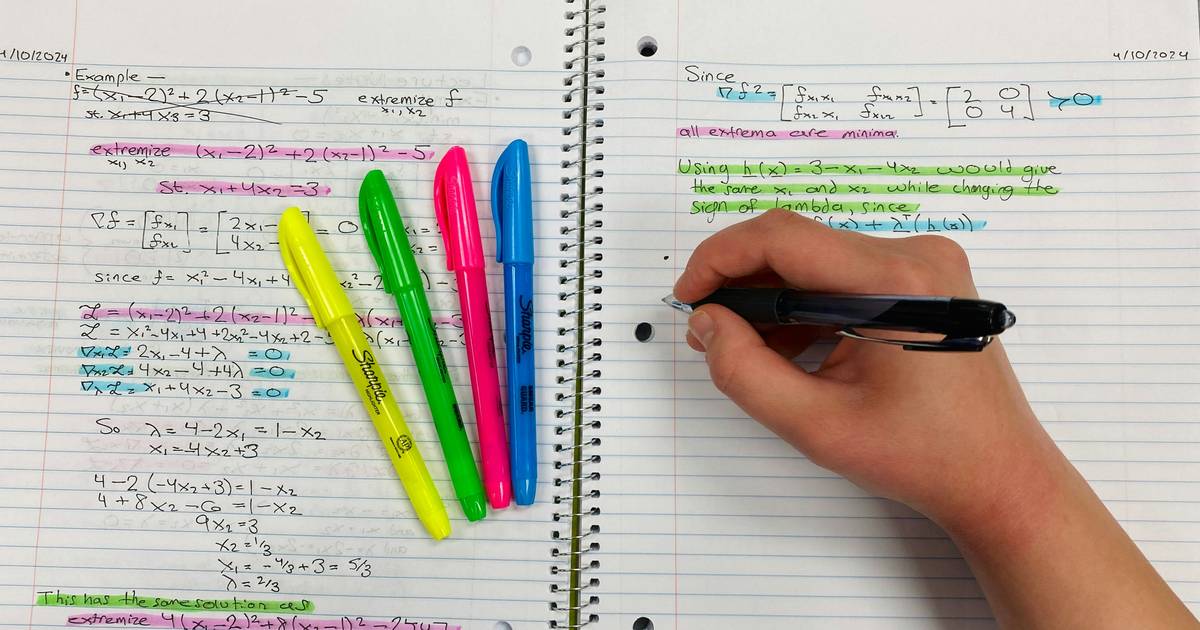 4/10/2024
• Example —
f=(x₁-2)²+2(x₂-1)²-5 extremize f
x₁,x₂
st. x₁+4x₃=3
extremize (x₁-2)²+2(x₂-1)²-5
x₁, x₂
st. x₁+4x₂=3
∇f = [fx₁ fx₂] = [2x₁- 4x₂- ] = 0
since f= x₁²-4x₁+4
ℒ = (x₁-2)²+2(x₂-1)²-
ℒ = x₁²-4x₁+4+2x₂²-4x₂+2-
∇x₁ℒ= 2x₁-4+λ =0
∇x₂ℒ= 4x₂-4+4λ =0
∇λℒ= x₁+4x₂-3 =0
So λ=4-2x₁=1-x₂
x₁=-4x₂+3
4-2(-4x₂+3)=1-x₂
4+8x₂-6=1-x₂
9x₂=3
x₂=1/3
x₁=-4/3+3=5/3
λ=2/3
This has the same solution as
extremize 4(x₁-2)²+8(x₂-1)²
Sharpie
Sharpie
4/10/2024
Since
∇f2 = [fx₁x₁ fx₁x₂ fx₂x₁ fx₂x₂] = [2 0 0 4] >0
all extrema are minima.
Using h(x)=3-x₁-4x₂ would give
the same x₁ and x₂ while changing the
sign of lambda, since
f(x)+λᵀ(h(x))